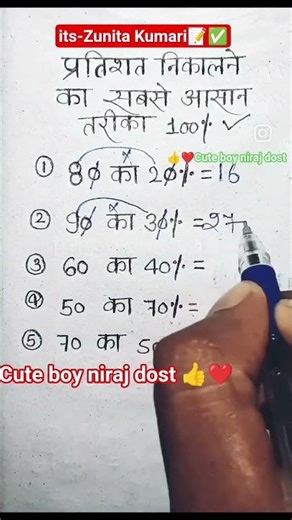 its-Zunita Kumari📝✅
प्रतिशत निकालने
का सबसे आसान
तरीका 100% ✓
👍❤️Cute boy niraj dost
① 80 का 20% = 16
② 90 का 30% = 27
③ 60 का 40% =
④ 50 का 70% =
⑤ 70 का
Cute boy niraj dost 👍❤️